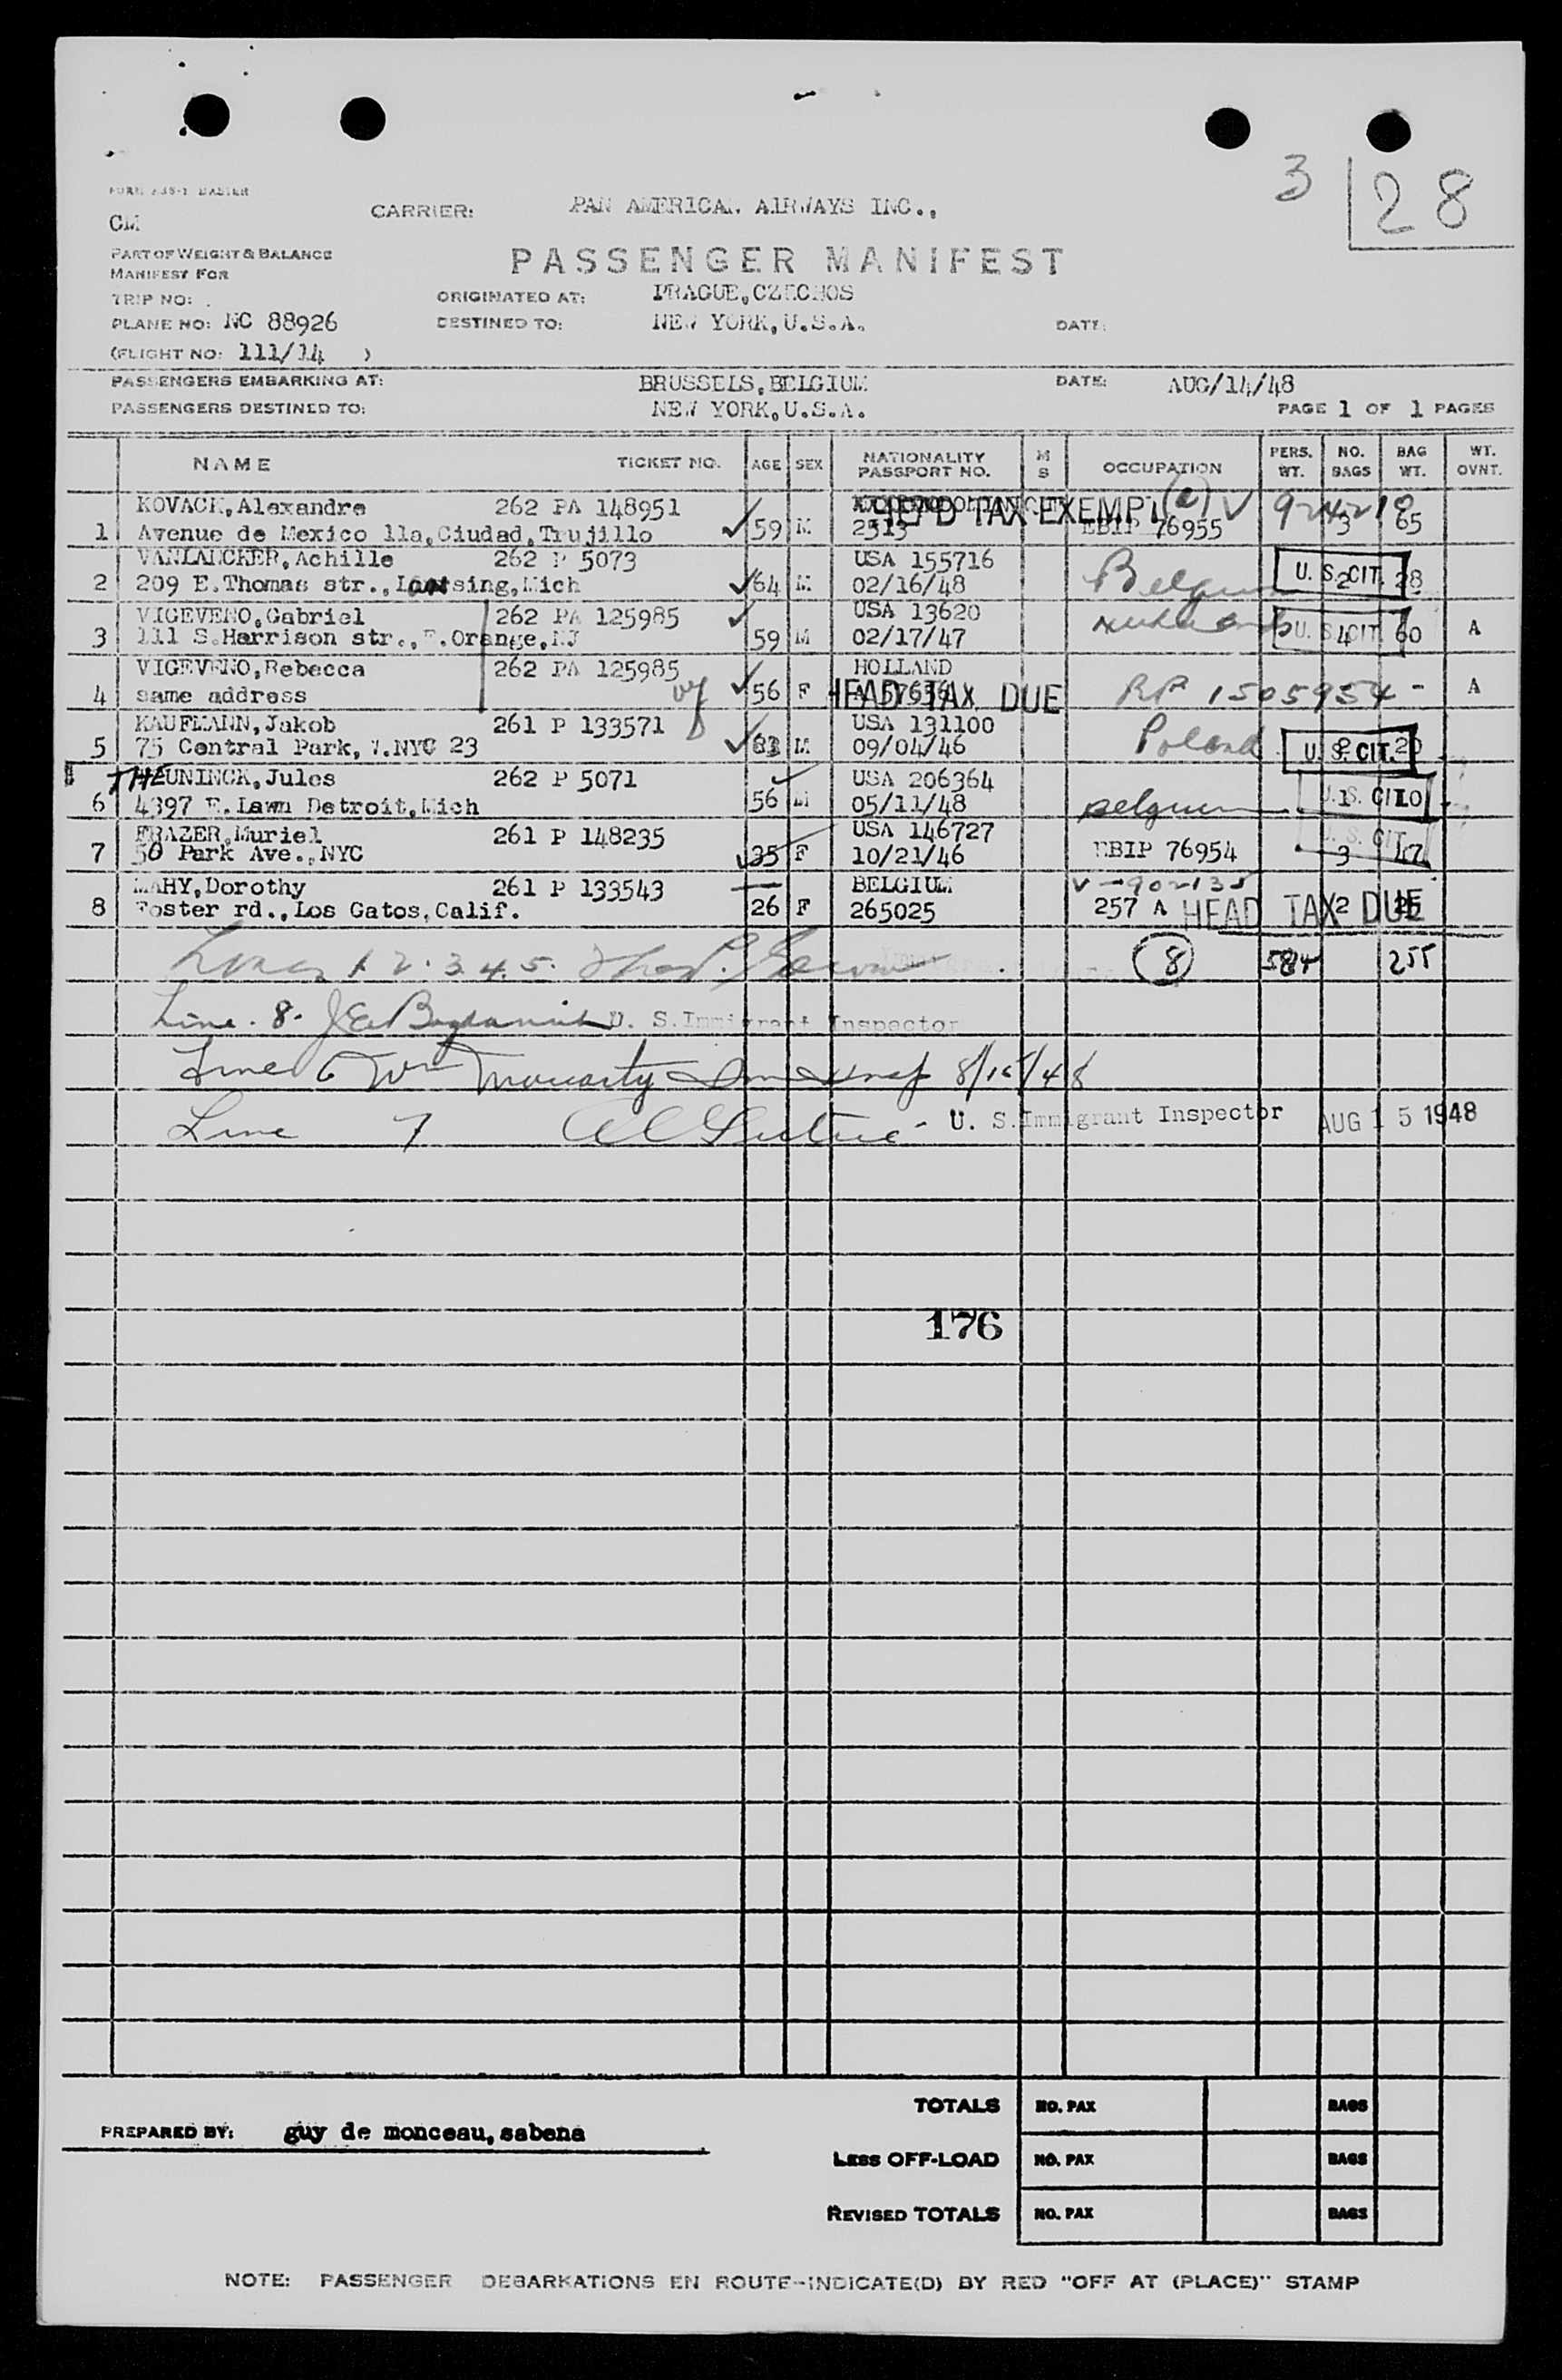 3 28
CM
CARRIER: PAN AMERICAN AIRWAYS INC.,
PART OF WEIGHT & BALANCE
PASSENGER MANIFEST
MANIFEST FOR
TRIP NO:
ORIGINATED AT: PRAGUE,CZECHOS
PLANE NO: NC 88926
DESTINED TO: NEW YORK,U.S.A.
DATE:
(FLIGHT NO: 111/14 )
PASSENGERS EMBARKING AT: BRUSSELS,BELGIUM DATE: AUG/14/48
PASSENGERS DESTINED TO: NEW YORK,U.S.A. PAGE 1 OF 1 PAGES
NAME TICKET NO. AGE SEX NATIONALITY PASSPORT NO. M S OCCUPATION PERS. WT. NO. BAGS BAG WT. WT. OVNT.
KOVACH,Alexandre 262 PA 148951 TAX EXEMPT
1 Avenue de Mexico 11a,Ciudad,Trujillo 59 M 2513 EBIP 76955 3 65
VANLANCKER,Achille 262 P 5073 USA 155716
2 209 E.Thomas str., Lansing,Mich 64 M 02/16/48 Belgium U. S. CIT. 2 28
VIGEVENO,Gabriel 262 PA 125985 USA 13620
3 111 S.Harrison str.,E.Orange,NJ 59 M 02/17/47 U. S. CIT. 4 60 A
VIGEVENO,Rebecca 262 PA 125985 HOLLAND
4 same address 56 F HEAD TAX DUE RP 1505954 - A
KAUFMANN,Jakob 261 P 133571 USA 131100
5 75 Central Park, W.NYC 23 83 M 09/04/46 Poland U. S. CIT. 20
THEUNINCK,Jules 262 P 5071 USA 206364
6 4397 E.Lawn Detroit,Mich 56 M 05/11/48 Belgium U. S. CIT 1 10
FRAZER,Muriel 261 P 148235 USA 146727
7 50 Park Ave.,NYC 35 F 10/21/46 EBIP 76954 U. S. CIT. 3 47
MAHY,Dorothy 261 P 133543 BELGIUM V-902135
8 Foster rd.,Los Gatos,Calif. 26 F 265025 257 A HEAD TAX DUE 2 25
Lines 1. 2. 3. 4. 5. 8 584 255
Line. 8. U. S. Immigrant Inspector
Line 6 Wm Moriarty Imm Insp 8/15/48
Line 7 U. S. Immigrant Inspector AUG 15 1948
176
TOTALS NO. PAX BAGS
PREPARED BY: guy de monceau,sabena
LESS OFF-LOAD NO. PAX BAGS
REVISED TOTALS NO. PAX BAGS
NOTE: PASSENGER DEBARKATIONS EN ROUTE-INDICATE(D) BY RED "OFF AT (PLACE)" STAMP